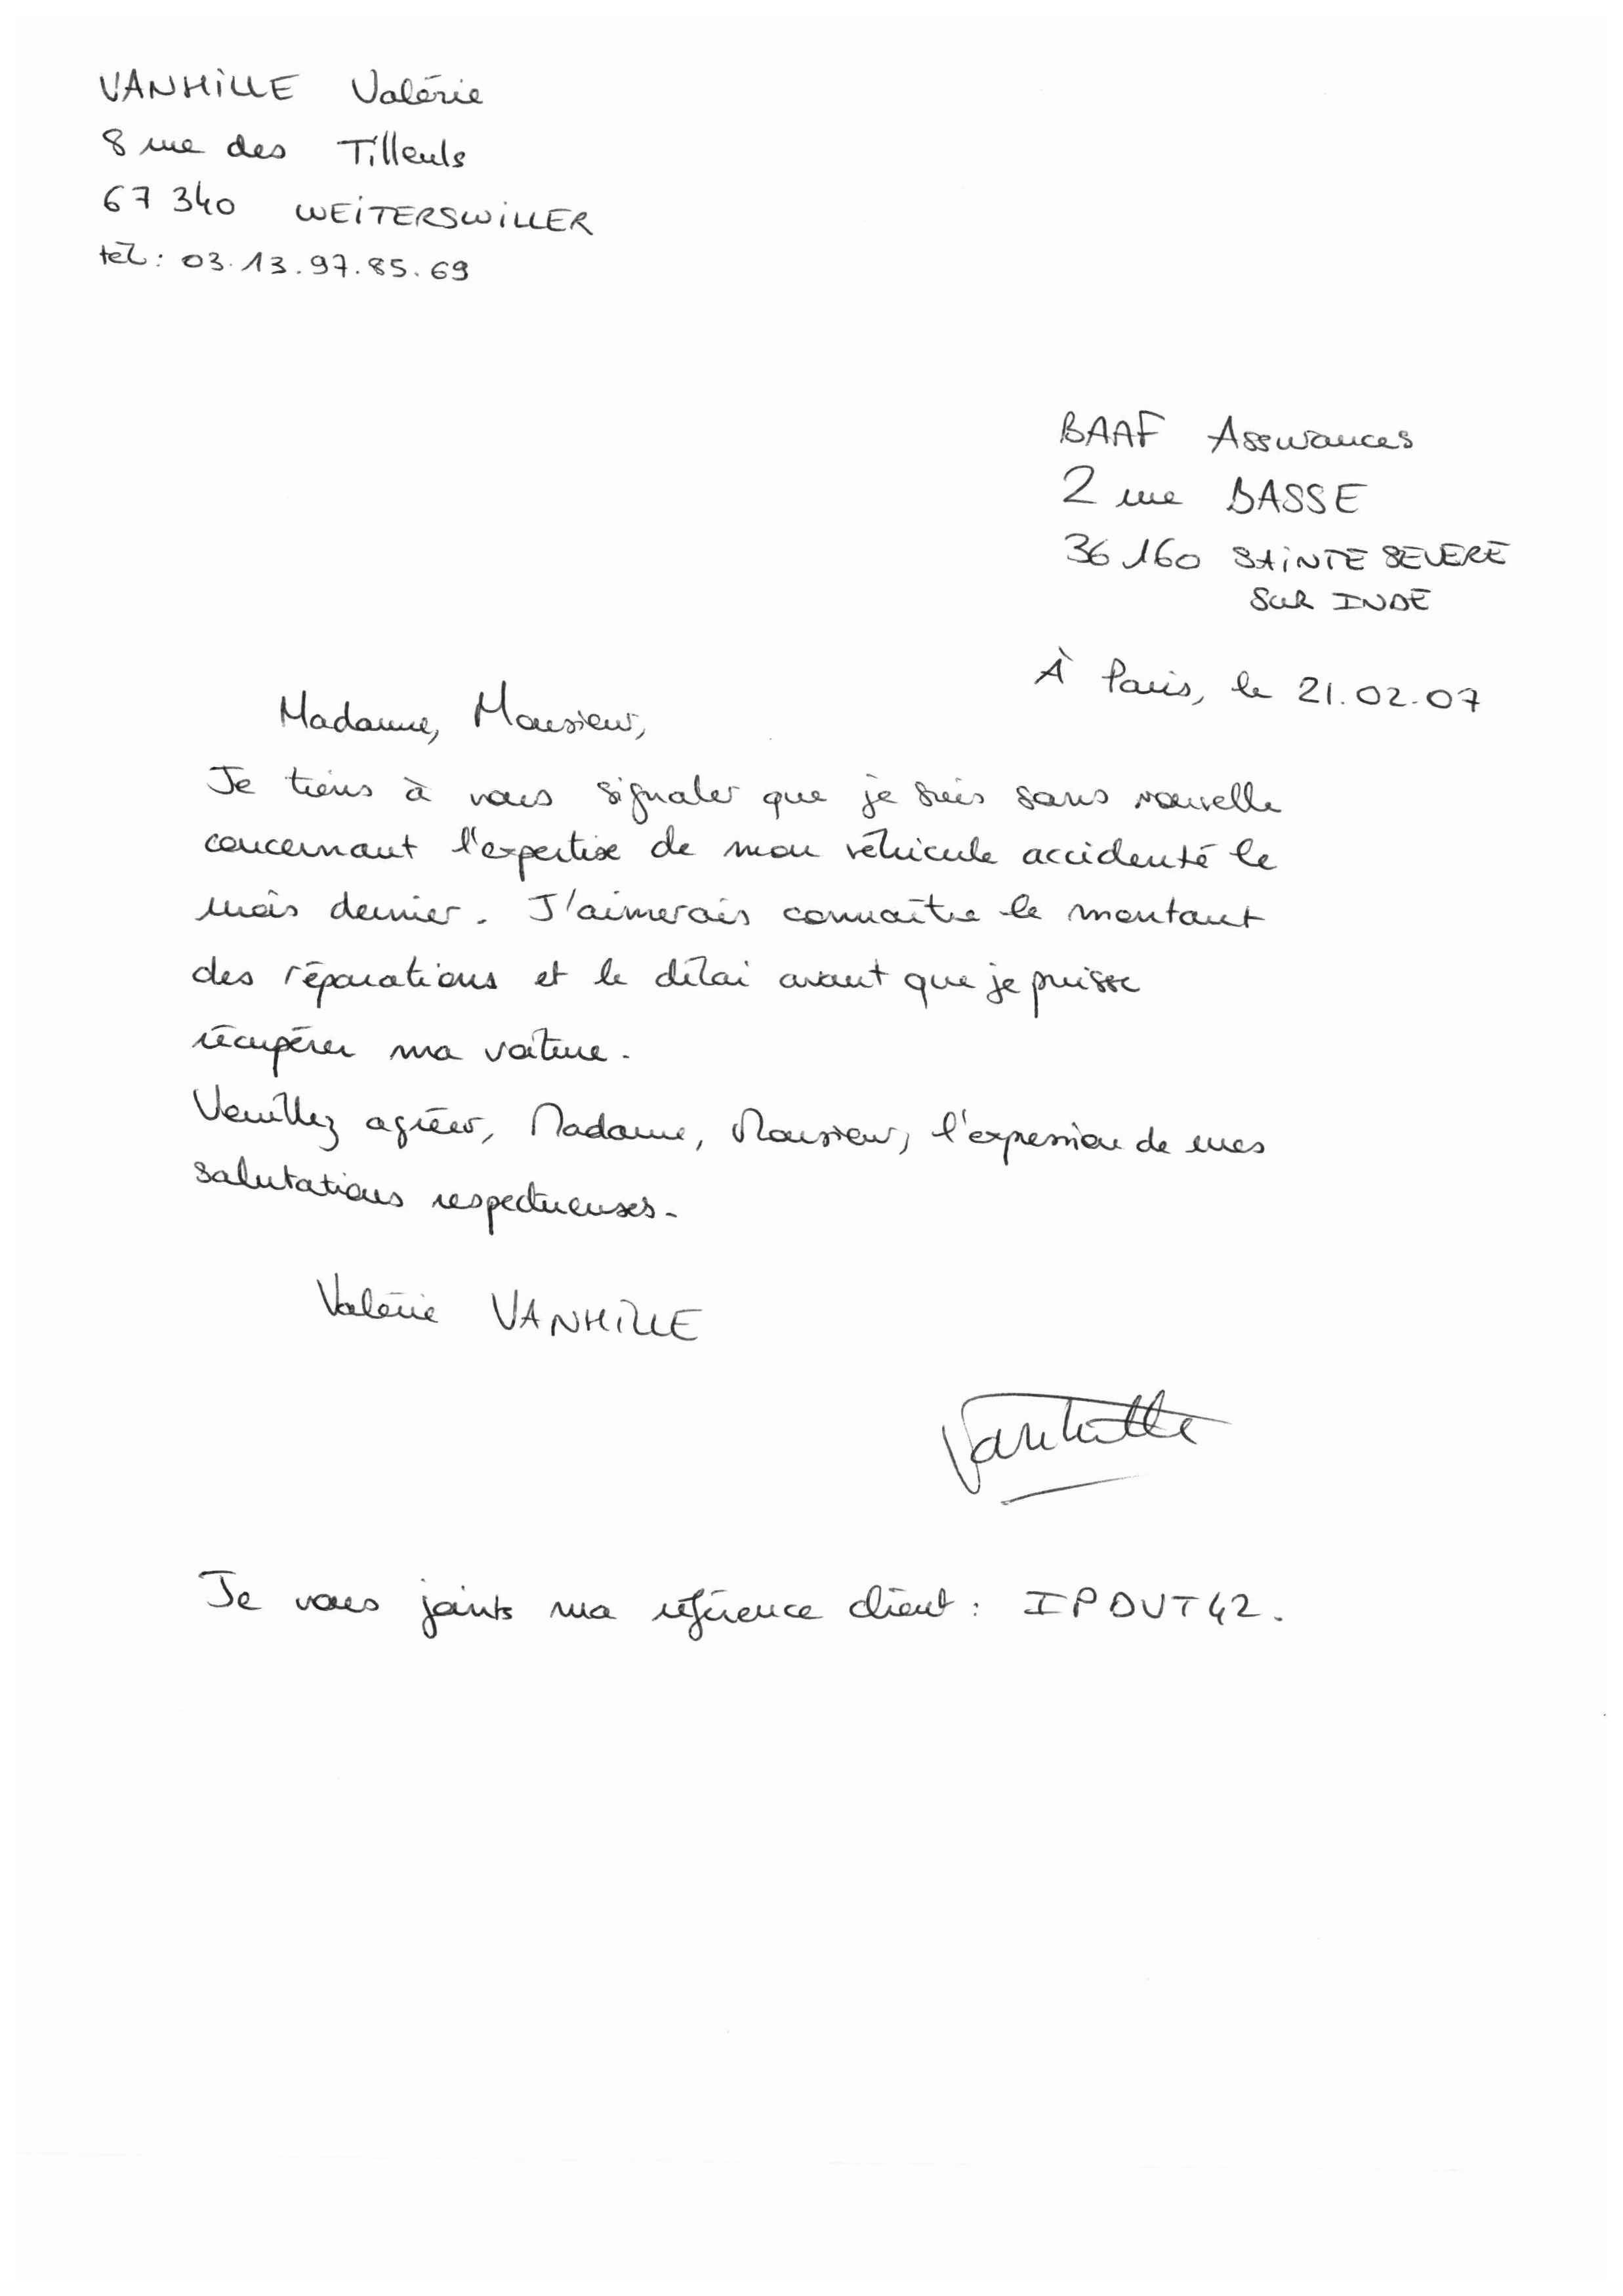 VANHILLE Valérie
8 rue des Tilleuls
67 340 WEITERSWILLER
tél : 03.13.97.85.69
BAAF Assurances
2 rue BASSE
36 160 SAINTE SEVERE
SUR INDE
À Paris, le 21.02.07
Madame, Monsieur,
Je tiens à vous signaler que je suis sans nouvelle
concernant l'expertise de mon véhicule accidenté le
mois dernier. J'aimerais connaître le montant
des réparations et le délai avant que je puisse
récupérer ma voiture.
Veuillez agréer, Madame, Monsieur, l'expression de mes
salutations respectueuses.
Valérie VANHILLE
Vanhille
Je vous joints ma référence client : IPDVT42.